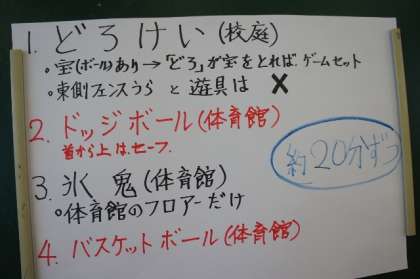 1. どろけい(校庭)
・宝(ボール)あり→「どろ」が宝をとれば、ゲームセット
・東側フェンスうらと遊具は ✕
2. ドッジボール(体育館)
首から上は、セーフ.
3. 氷鬼(体育館)
・体育館のフロアーだけ
4. バスケットボール(体育館)
約20分ずつ